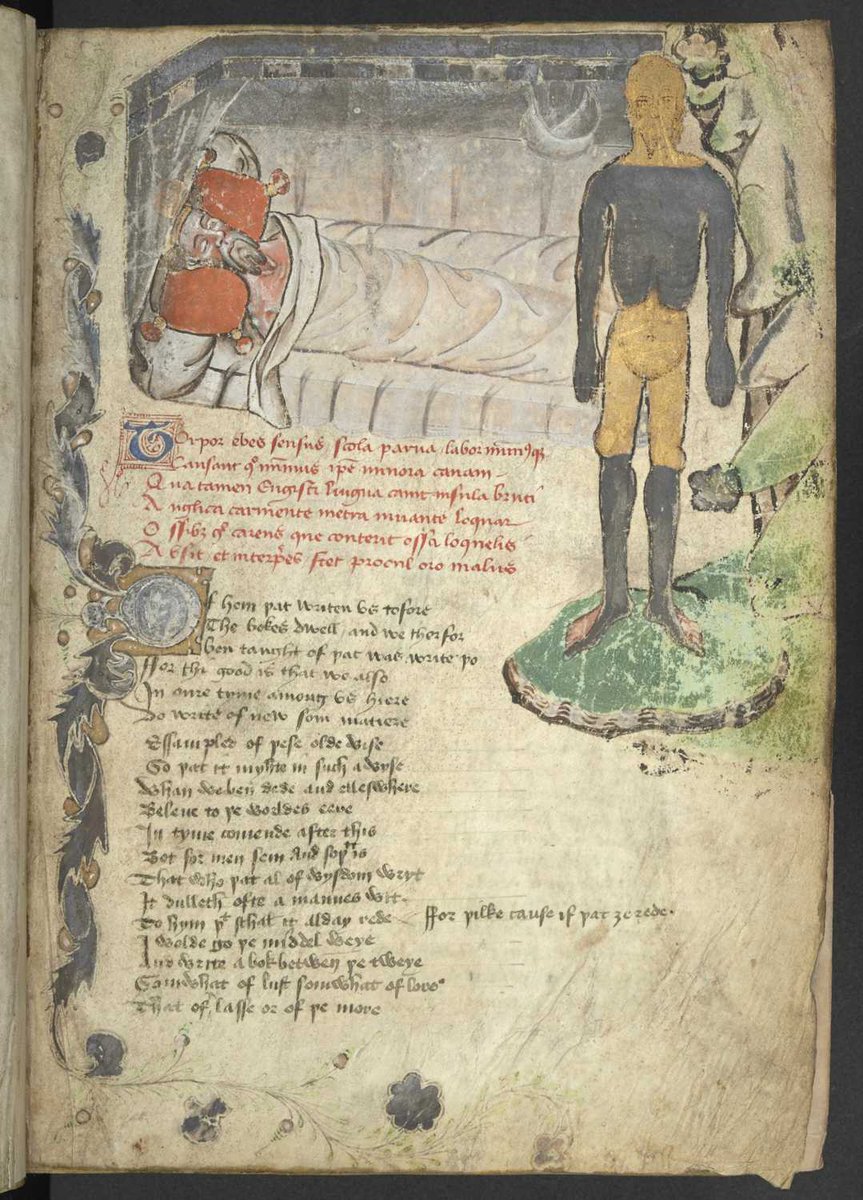 Torpor ebes sensus scola parua labor minimꝰqꝫ
Causant qͦ minimus ipẽ minora canam
Qua tamen Engisti lingua canit insula bruti
Anglica carmente metra iuuante loquar
Ossibꝫ gͦ carens que conterit ossa loquelis
Absit et interp̃s stet procul oro malus
Of hem þat writen vs tofore
The bokes dwell and we therfor
Ben taught of þat was write þo
ffor thi good is that we also
In oure tyme among vs hiere
Do write of new som matiere
Essamples of þese olde wise
So þat it myhte in such a wyse
Whan we ben dede and elleswhere
Beleue to þe worldes eere
In tyme comende after this
Bot for men sein and soþ it is
That who þat al of wysdom wryt
It dulleth ofte a mannes witt
To hym þͭ schal it alday rede ffor þilke cause if þat ȝe rede.
I wolde go þe middel weye
And write a bok betwen þe tweye
Somwhat of lust somwhat of lore
That of lasse or of þe more